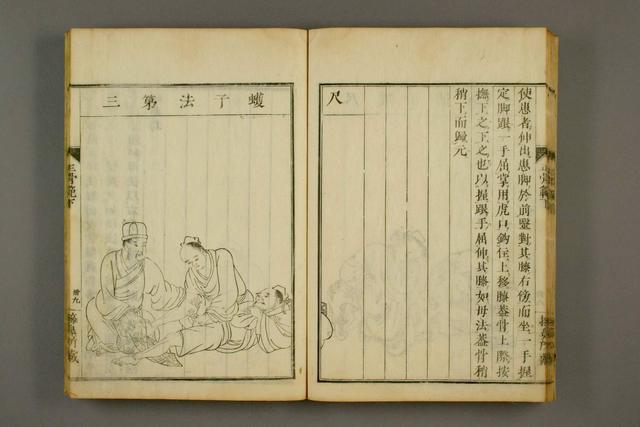 使患者伸出患脚於前毉對其膝右傍而坐一手握
定脚跟一手屈掌用虎口鉤住上移膝蓋骨上際按
撫下之下之也以握跟手屈伸其膝如母法蓋骨稍
稍下而歸元
尺
蠖子法第三
正骨範下